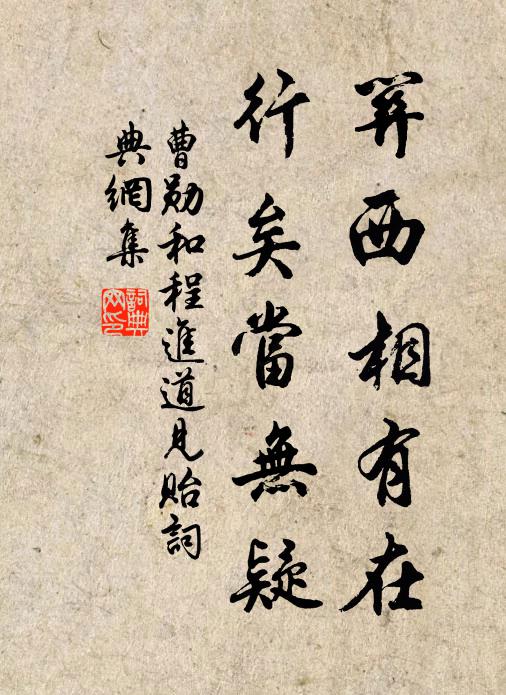 羿西相有在
行矣當無疑
曹勛和程進道見貽詞
典網集
詞典網印